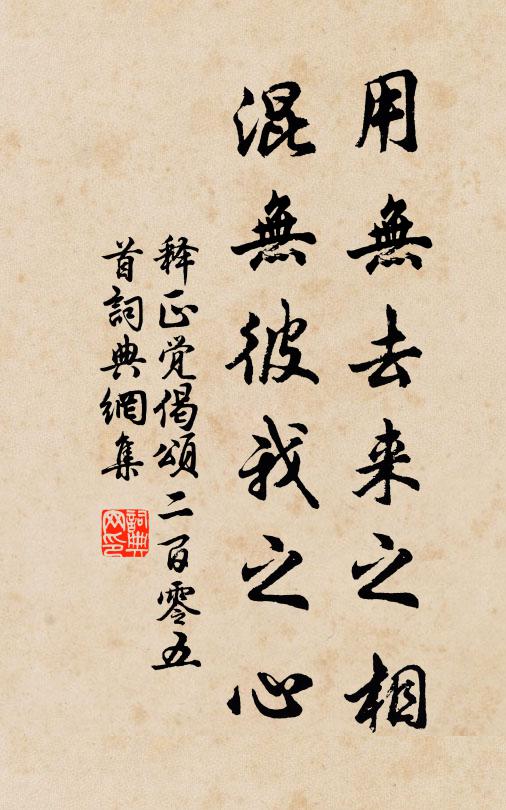 用無去来之相
混無彼我之心
释正觉偈頌二百零五
首詞典網集
詞典
网印